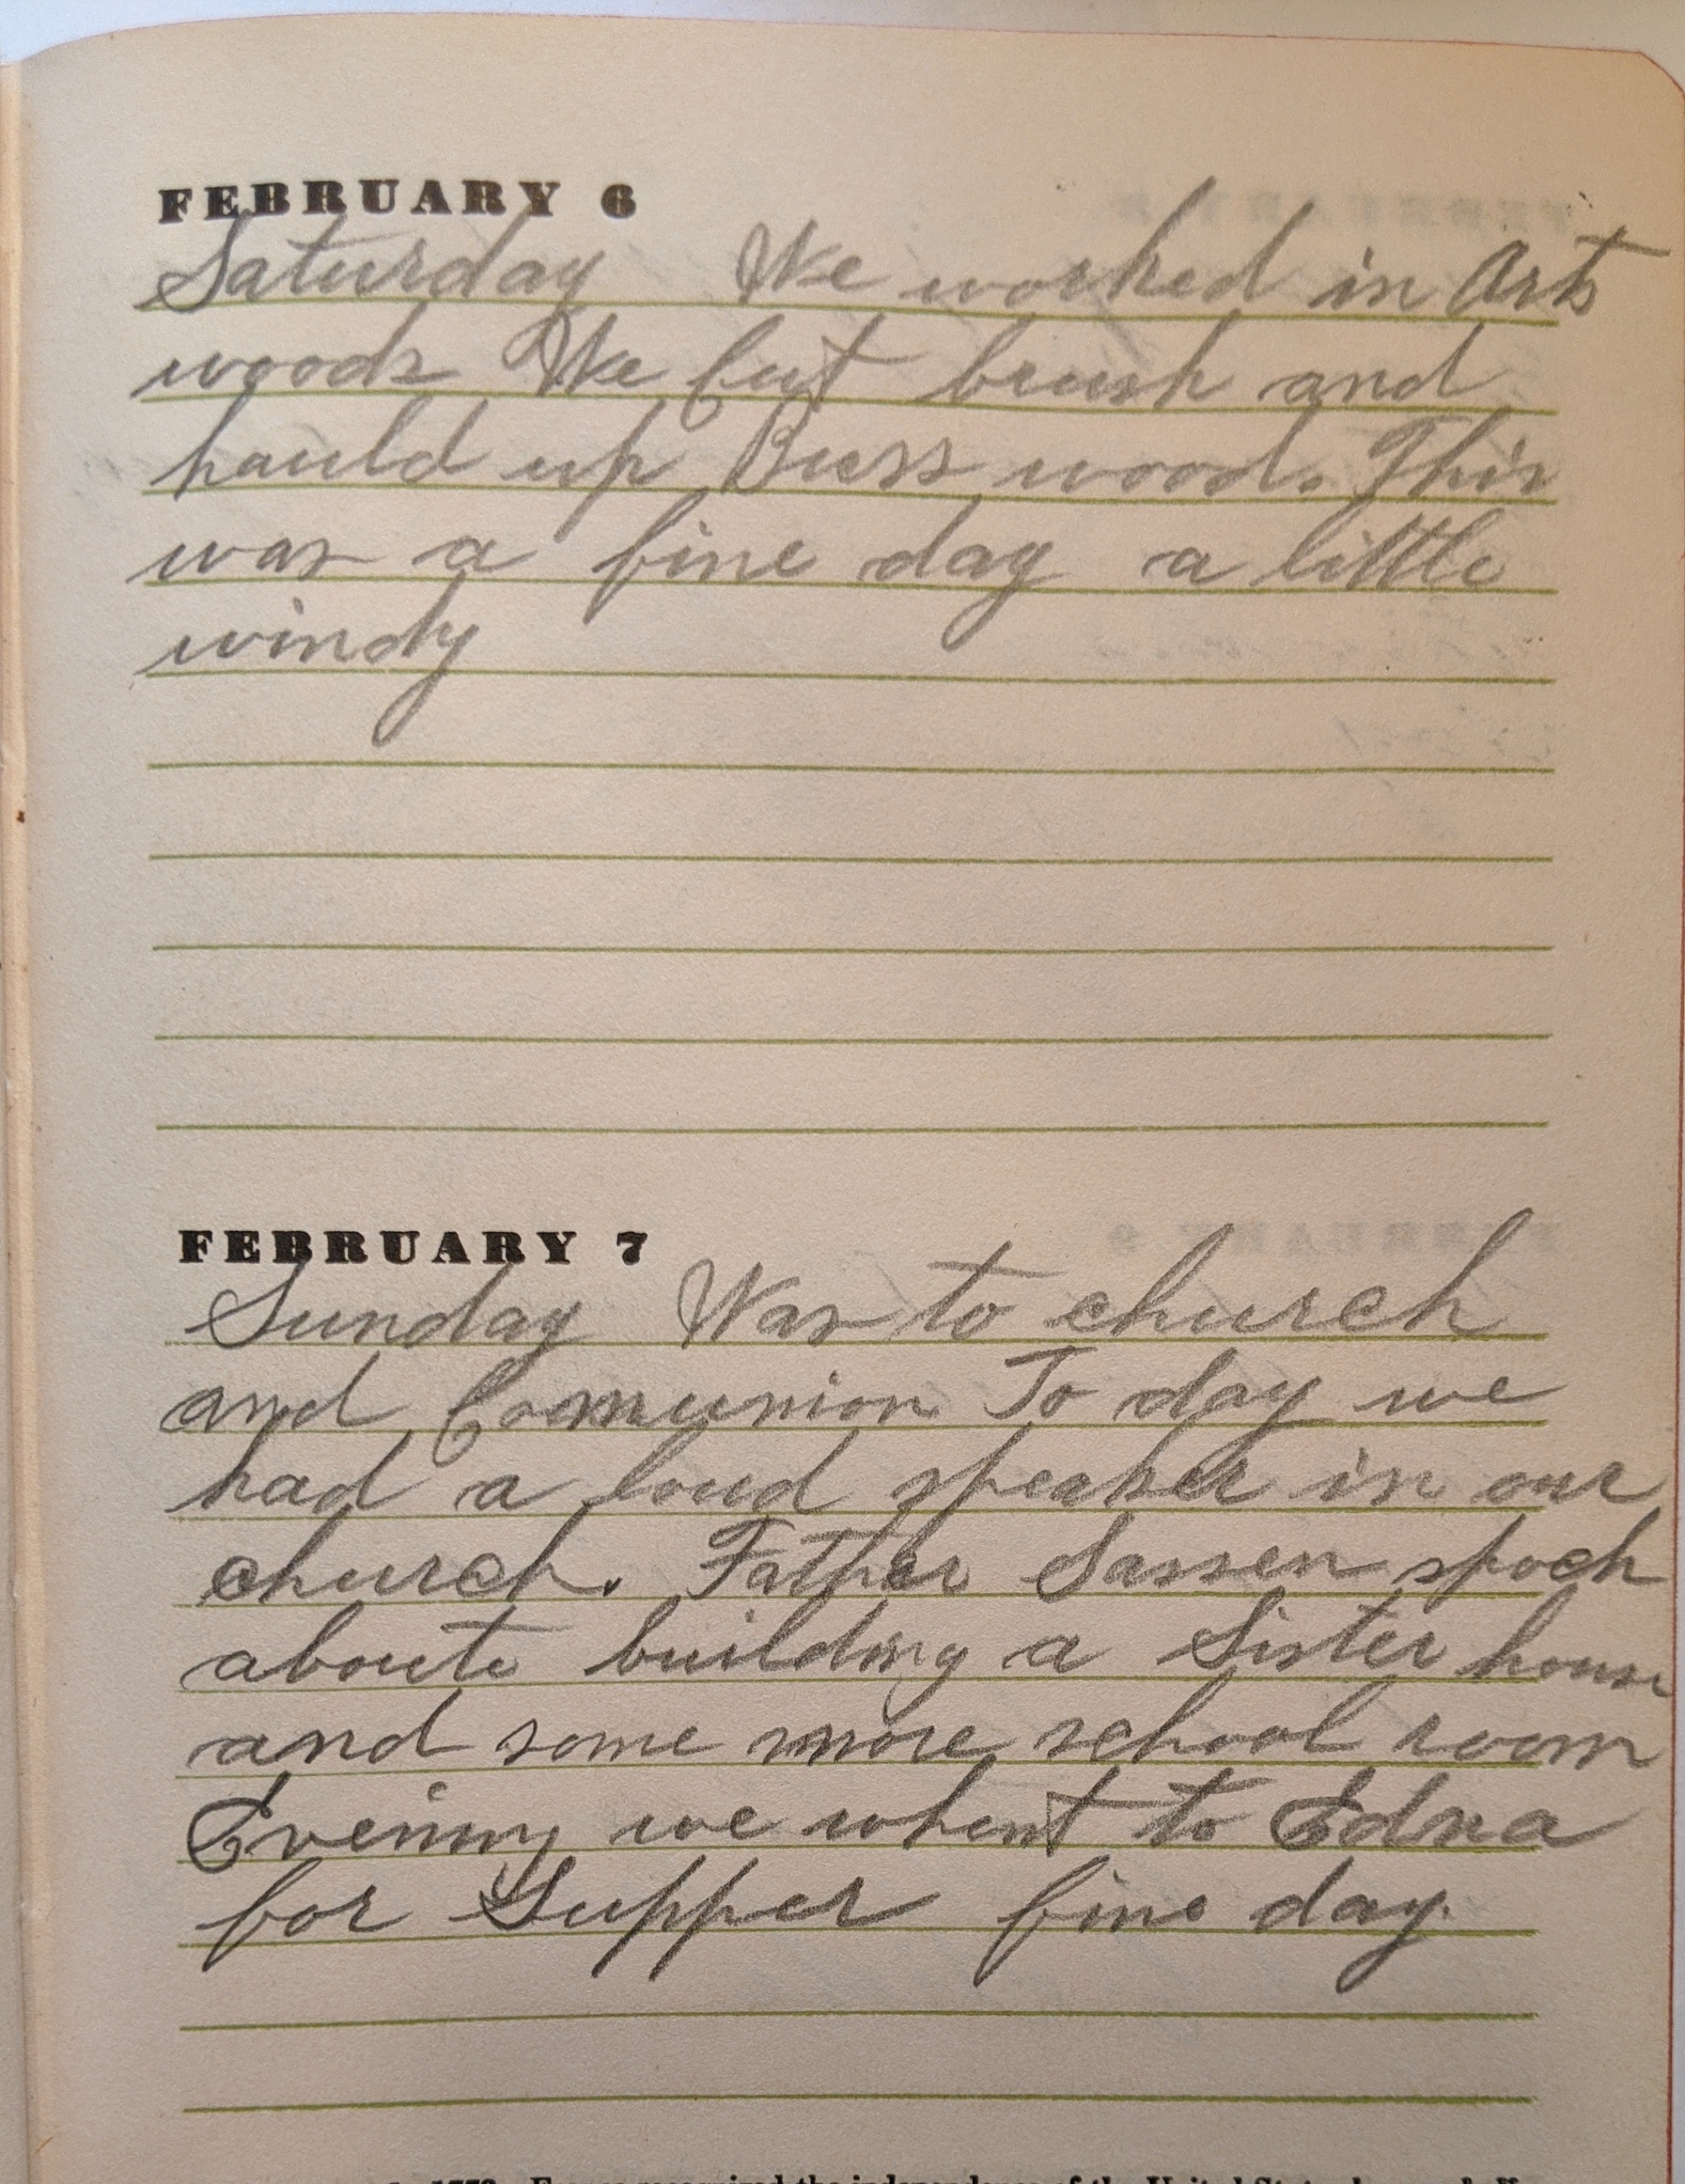 FEBRUARY 6
Saturday We worked in Arts
woods We Cut brush and
hauld up Buss wood. This
was a fine day a little
windy
FEBRUARY 7
Sunday Was to church
and Comunion To day we
had a loud speaker in our
church. Father Sassen spoch
aboute building a Sister house
and some more school room
Evening we whent to Edna
for Supper fine day.